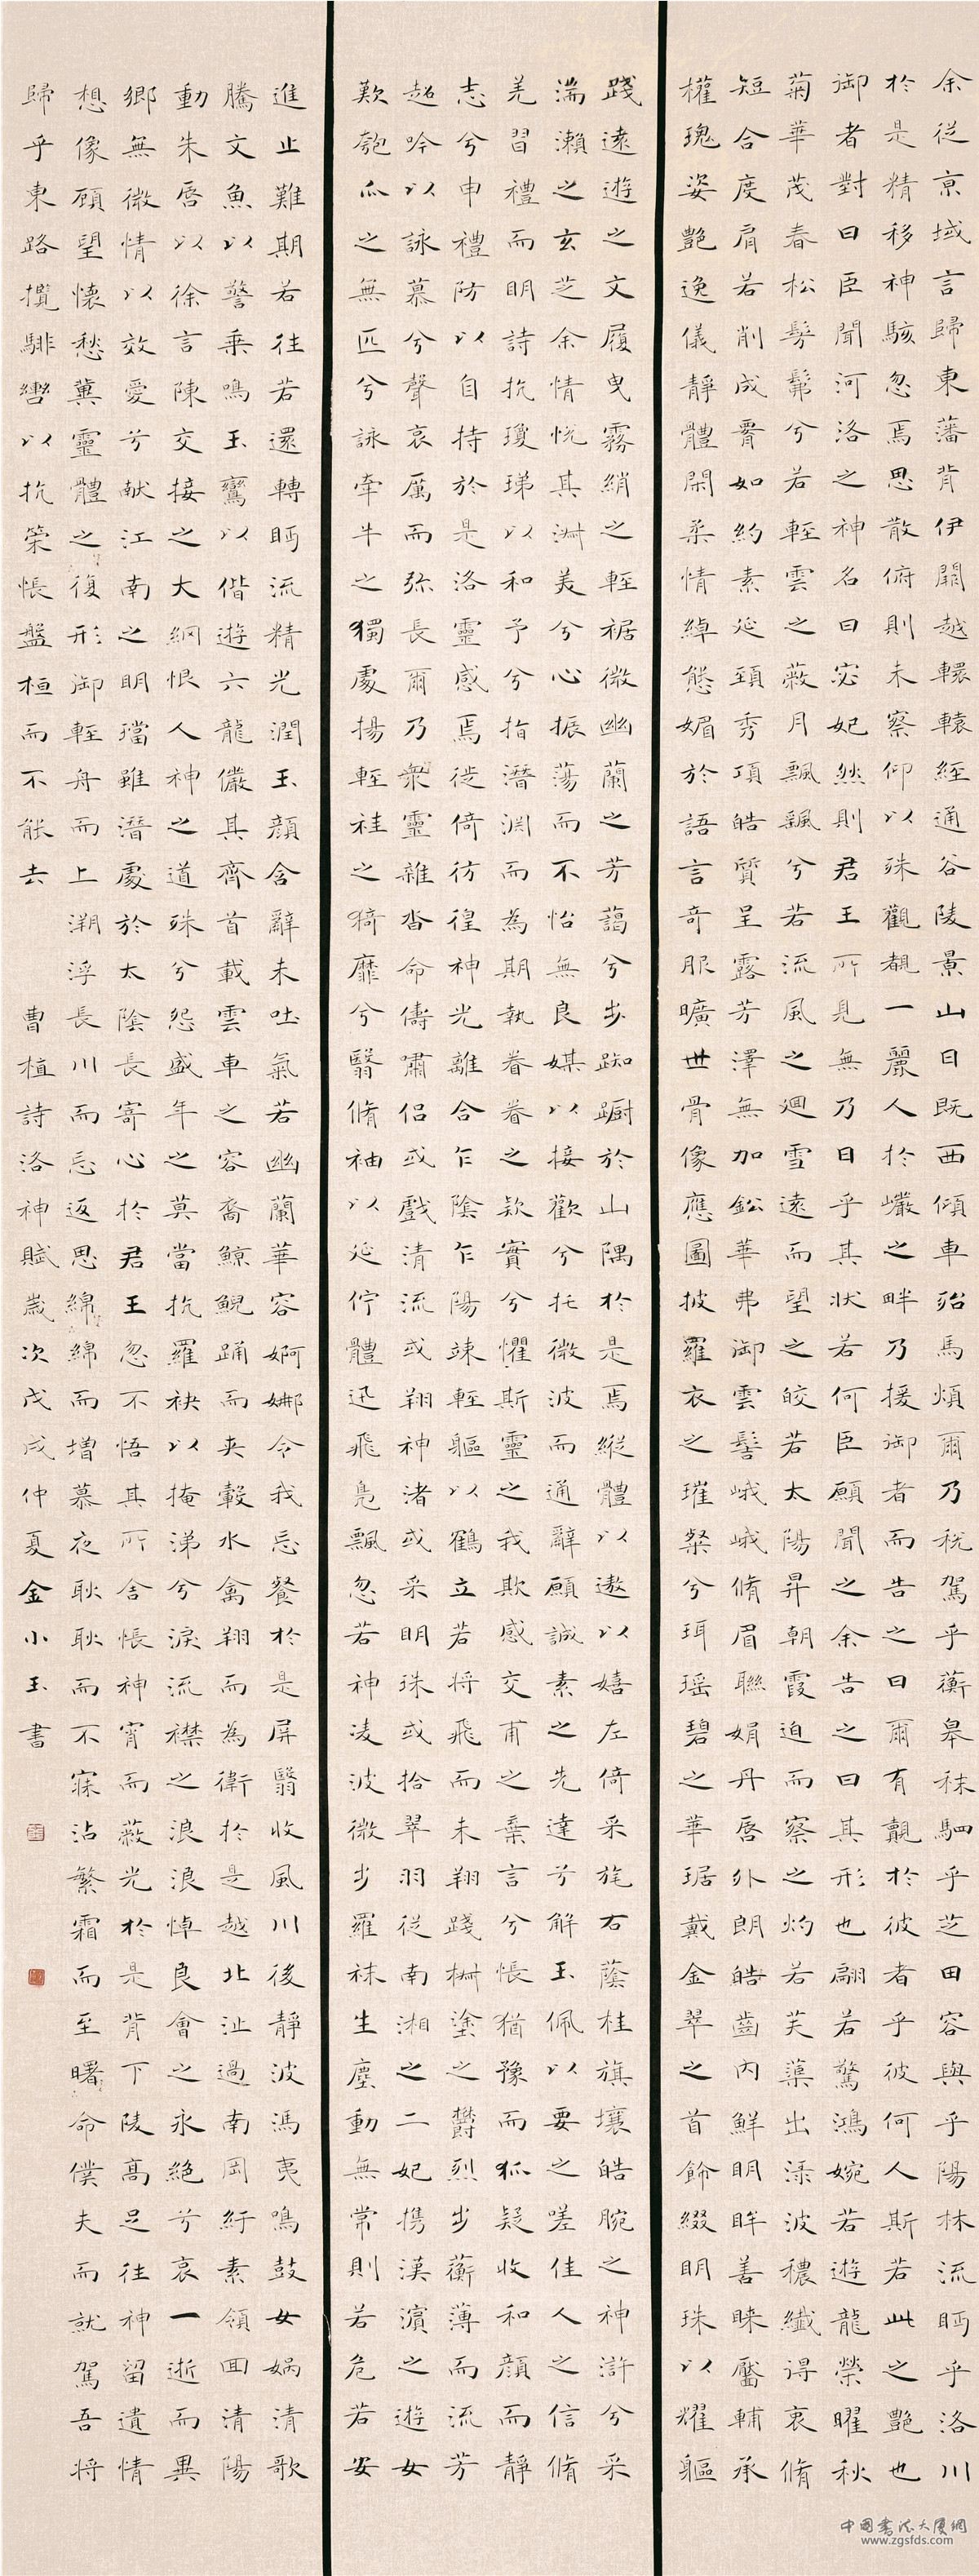 余從京域言歸東藩背伊闕越轘轅經通谷陵景山日既西傾車殆馬煩爾乃稅駕乎蘅皋秣駟乎芝田容與乎陽林流眄乎洛川
於是精移神駭忽焉思散俯則未察仰以殊觀覩一麗人於巖之畔乃援御者而告之曰爾有覿於彼者乎彼何人斯若此之艷也
御者對曰臣聞河洛之神名曰宓妃然則君王所見無乃日乎其狀若何臣願聞之余告之曰其形也翩若驚鴻婉若遊龍榮曜秋
菊華茂春松髣髴兮若輕雲之蔽月飄颻兮若流風之迴雪遠而望之皎若太陽昇朝霞迫而察之灼若芙蕖出淥波穠纖得衷脩
短合度肩若削成腰如約素延頸秀項皓質呈露芳澤無加鉛華弗御雲髻峨峨脩眉聯娟丹唇外朗皓齒內鮮明眸善睞靨輔承
權瑰姿艷逸儀靜體閑柔情綽態媚於語言奇服曠世骨像應圖披羅衣之璀粲兮珥瑤碧之華琚戴金翠之首飾綴明珠以耀軀
踐遠遊之文履曳霧綃之輕裾微幽蘭之芳藹兮步踟躕於山隅於是焉縱體以遨以嬉左倚采旄右蔭桂旗壤皓腕之神滸兮采
湍瀨之玄芝余情悅其淑美兮心振蕩而不怡無良媒以接歡兮托微波而通辭願誠素之先達兮解玉佩以要之嗟佳人之信脩
羌習禮而明詩抗瓊珶以和予兮指潛淵而為期執眷眷之款實兮懼斯靈之我欺感交甫之棄言兮悵猶豫而狐疑收和顏而靜
志兮申禮防以自持於是洛靈感焉徙倚彷徨神光離合乍陰乍陽竦輕軀以鶴立若將飛而未翔踐椒塗之鬱烈步蘅薄而流芳
超吟以詠慕兮聲哀厲而弥長爾乃衆靈雜沓命儔嘯侶或戲清流或翔神渚或采明珠或拾翠羽從南湘之二妃攜漢濱之遊女
歎匏瓜之無匹兮詠牽牛之獨處揚輕袿之猗靡兮翳脩袖以延佇體迅飛鳧飄忽若神凌波微步羅袜生塵動無常則若危若安
進止難期若往若還轉眄流精光潤玉顏含辭未吐氣若幽蘭華容婀娜令我忘餐於是屏翳收風川後靜波馮夷鳴鼓女媧清歌
騰文魚以警乘鳴玉鸞以偕遊六龍儼其齊首載雲車之容裔鯨鯢踊而夾轂水禽翔而為衛於是越北沚過南岡紆素領回清陽
動朱唇以徐言陳交接之大綱恨人神之道殊兮怨盛年之莫當抗羅袂以掩涕兮淚流襟之浪浪悼良會之永絕兮哀一逝而異
鄉無微情以效愛兮献江南之明璫雖潛處於太陰長寄心於君王忽不悟其所舍悵神宵而蔽光於是背下陵高足往神留遺情
想像顧望懷愁冀靈體之復形御輕舟而上溯浮長川而忘返思綿綿而增慕夜耿耿而不寐沾繁霜而至曙命僕夫而就駕吾將
歸乎東路攬騑轡以抗策悵盤桓而不能去 曹植詩洛神賦歲次戊戌仲夏金小玉書
中國書法大廈網
www.zgsfds.com